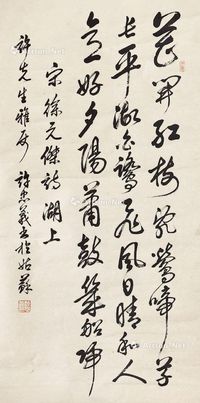 花開紅樹亂鶯啼草
長平湖白鷺飛風日晴和人
意好夕陽簫鼓幾船歸
宋徐元傑詩湖上
許先生雅屬 忠義書於姑蘇